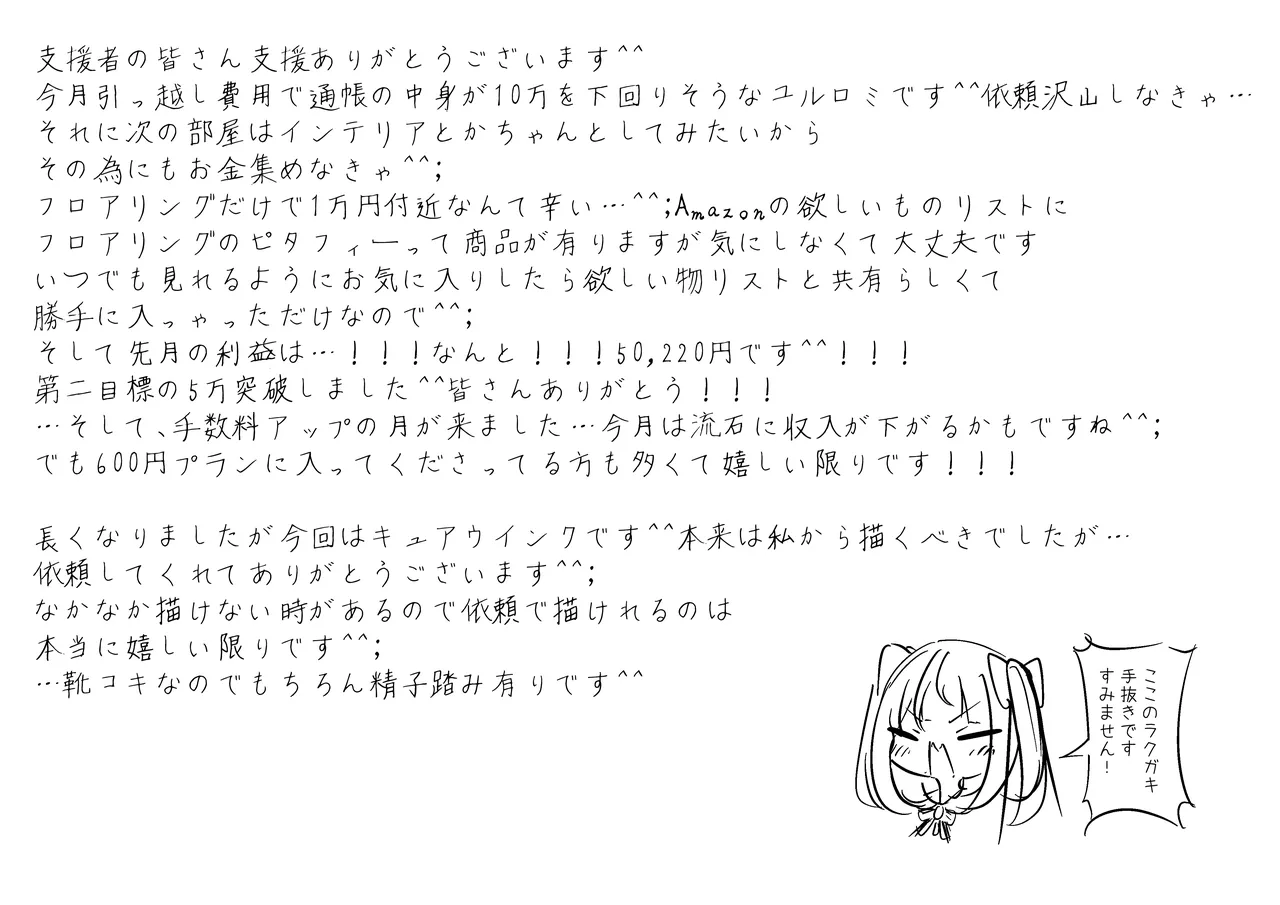 支援者の皆さん支援ありがとうございます^^
今月引っ越し費用で通帳の中身が10万を下回りそうなユルロミです^^依頼沢山しなきゃ…
それに次の部屋はインテリアとかちゃんとしてみたいから
その為にもお金集めなきゃ^^;
フロアリングだけで1万円付近なんて辛い…^^;Amazonの欲しいものリストに
フロアリングのピタフィーって商品が有りますが気にしなくて大丈夫です
いつでも見れるようにお気に入りしたら欲しい物リストと共有らしくて
勝手に入っゃっただけなので^^;
そして先月の利益は…！！！なんと！！！50,220円です^^！！！
第二目標の5万突破しました^^皆さんありがとう！！！
…そして、手数料アップの月が来ました…今月は流石に収入が下がるかもですね^^;
でも600円プランに入ってくださってる方も多くて嬉しい限りです！！！
長くなりましたが今回はキュアウインクです^^本来は私から描くべきでしたが…
依頼してくれてありがとうございます^^;
なかなか描けない時があるので依頼で描けれるのは
本当に嬉しい限りです^^;
…靴コキなのでもちろん精子踏み有りです^^
ここのラクガキ
手抜きです
すみません！